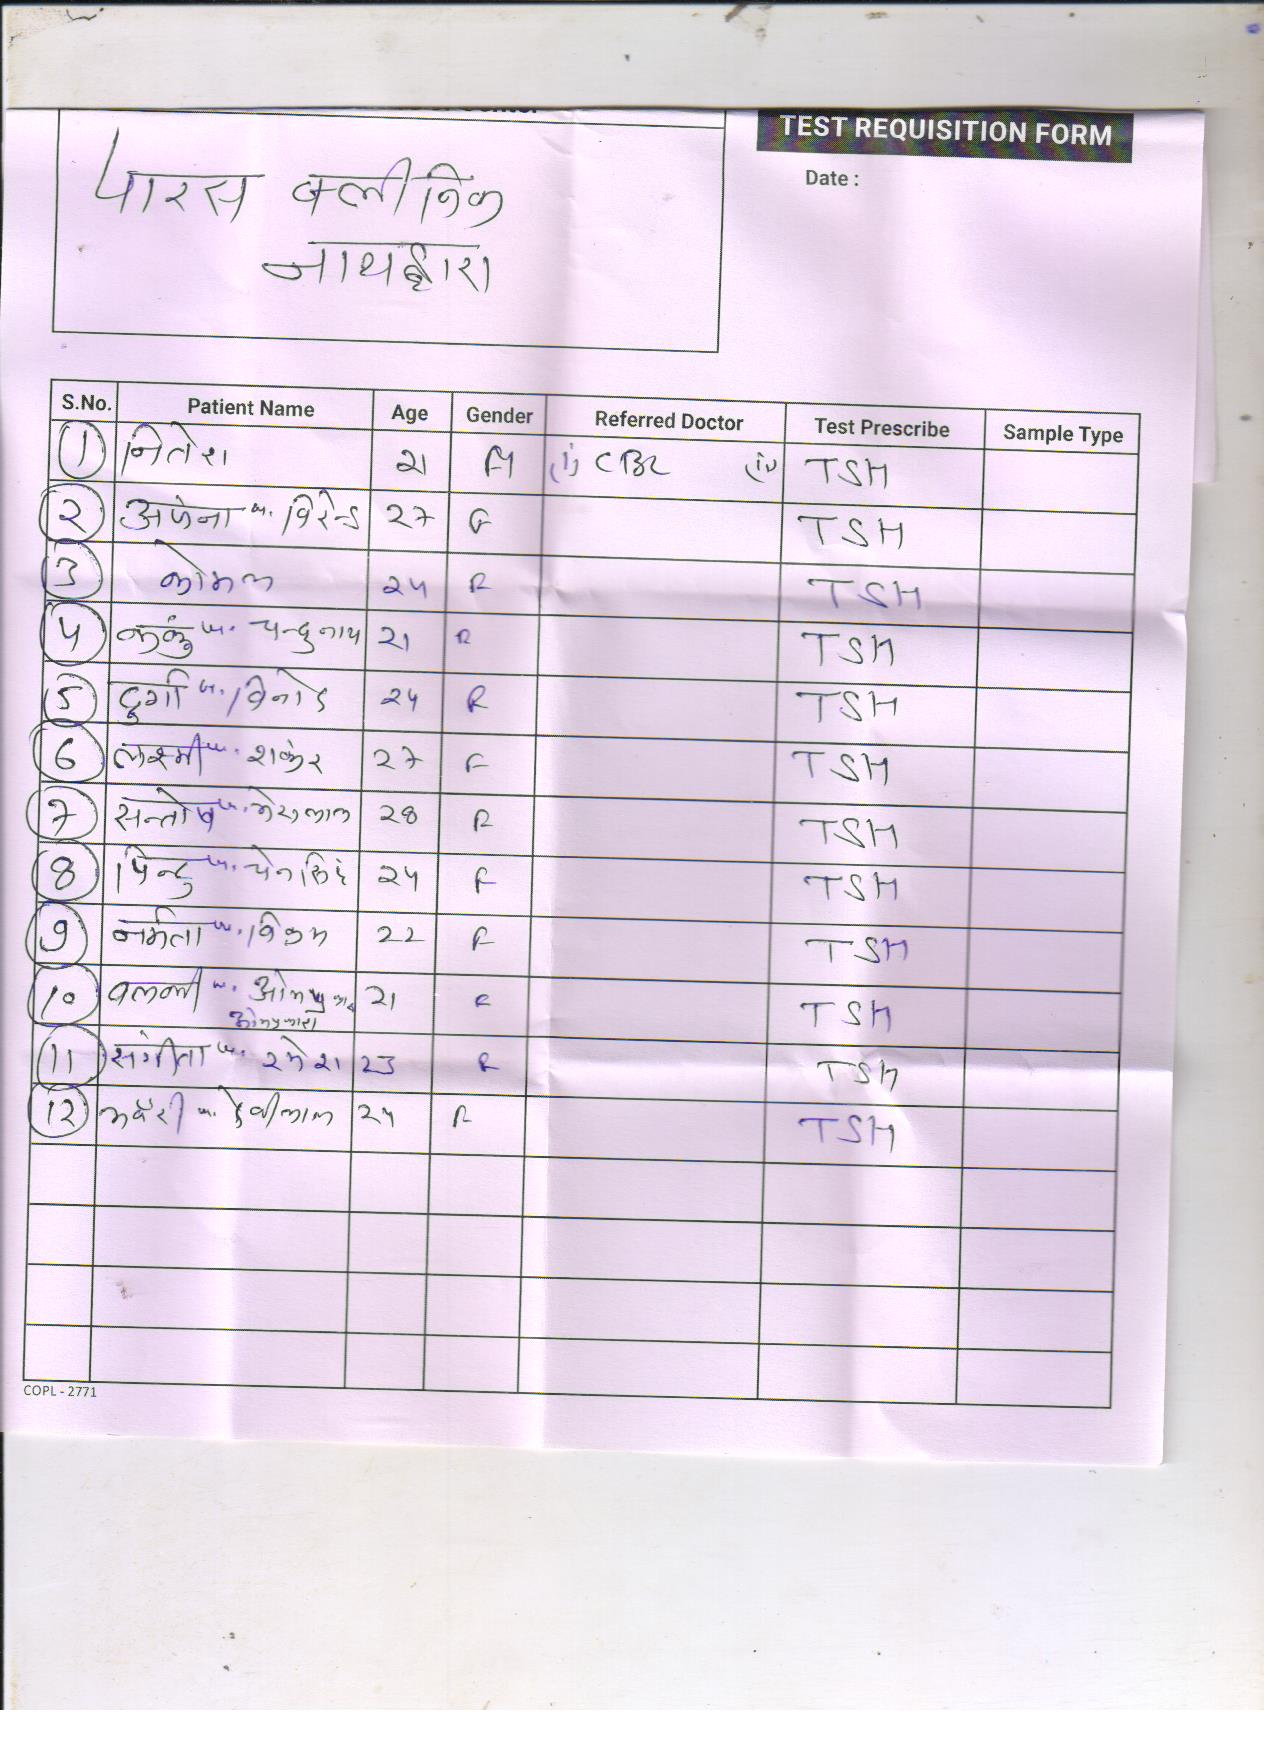 TEST REQUISITION FORM
Date :
पारस क्लीनिक
नाथद्वारा
S.No. Patient Name Age Gender Referred Doctor Test Prescribe Sample Type
1 नितेश 21 M (i) CBC (ii) TSH
2 w. 27 F TSH
3 कोमल 24 F TSH
4 w. चन्दुनाथ 21 F TSH
5 दुर्गा w. विनोद 24 F TSH
6 लक्ष्मी w. शकंर 27 F TSH
7 सन्तोष w. 28 F TSH
8 पिन्टु w. 24 F TSH
9 w. विक्रम 22 F TSH
10 w. 21 F TSH
ओमप्रकाश
11 संगीता w. रमेश 23 F TSH
12 w. देवीलाल 24 F TSH
COPL - 2771